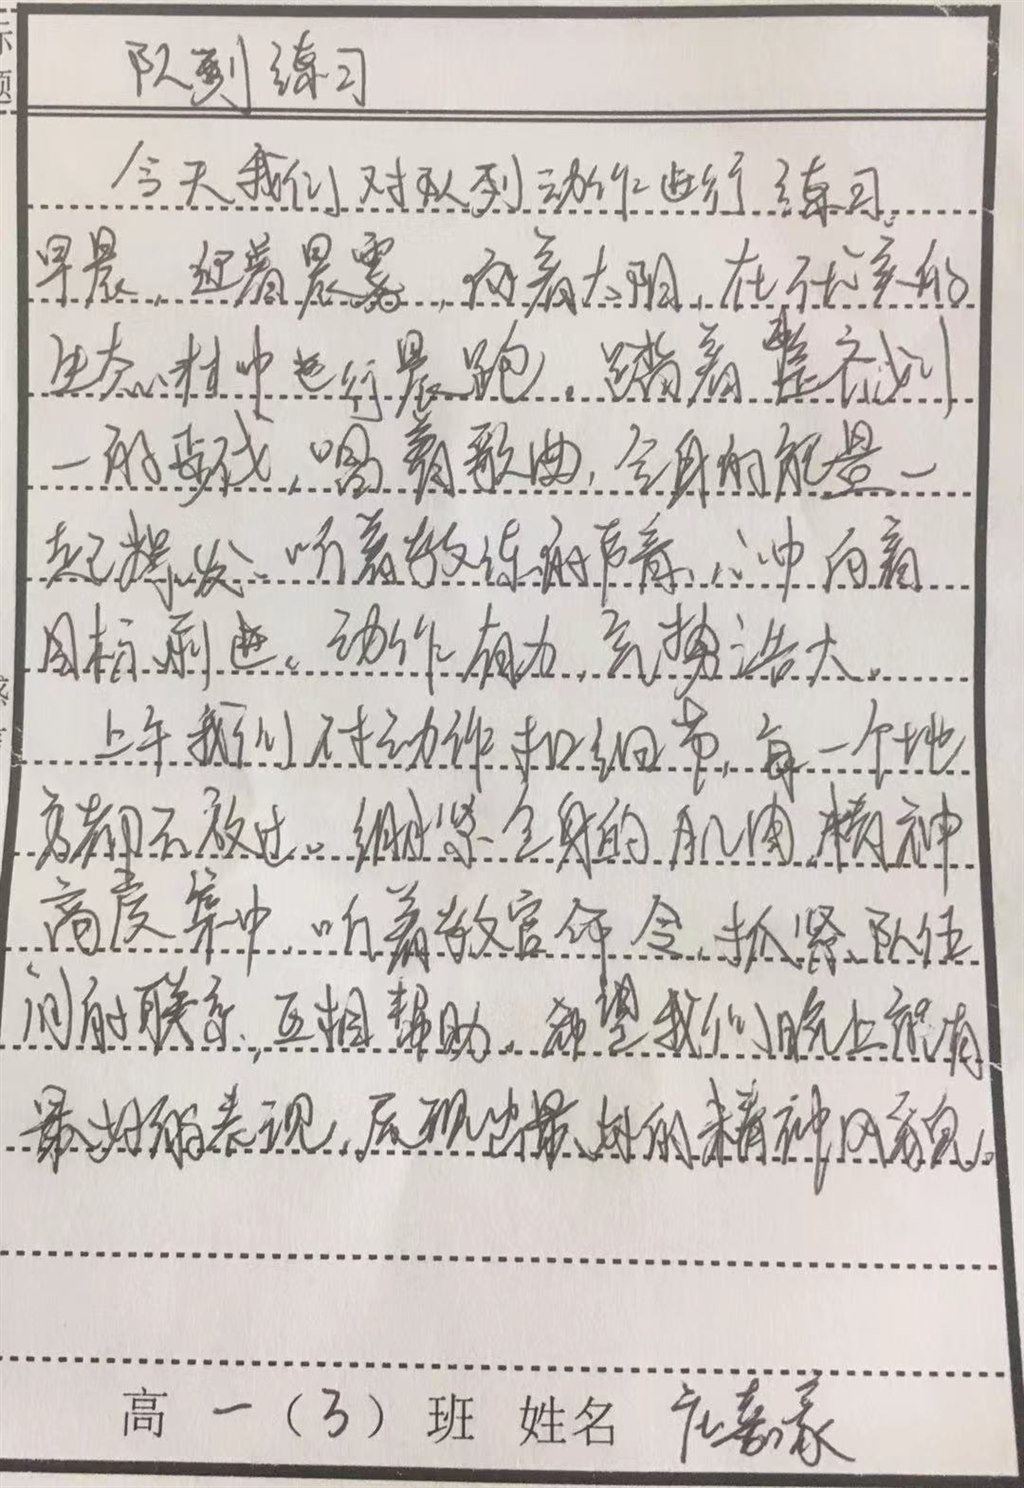 标
题
队列练习
今天我们对队列动作进行练习。
早晨，迎着晨雾，向着太阳，在优美的
生态村中进行晨跑。踏着整齐划
一的步伐，唱着歌曲，全身的能量一
起挥发。听着教练的声音，心中向着
目标前进。动作有力，气势浩大。
上午我们对动作扣细节，每一个地
方都不放过。绷紧全身的肌肉，精神
高度集中，听着教官命令，抓紧队伍
间的联系，互相帮助。希望我们晚上能有
最好的表现，展现出最好的精神风貌。
高一（3）班 姓名 庄嘉豪